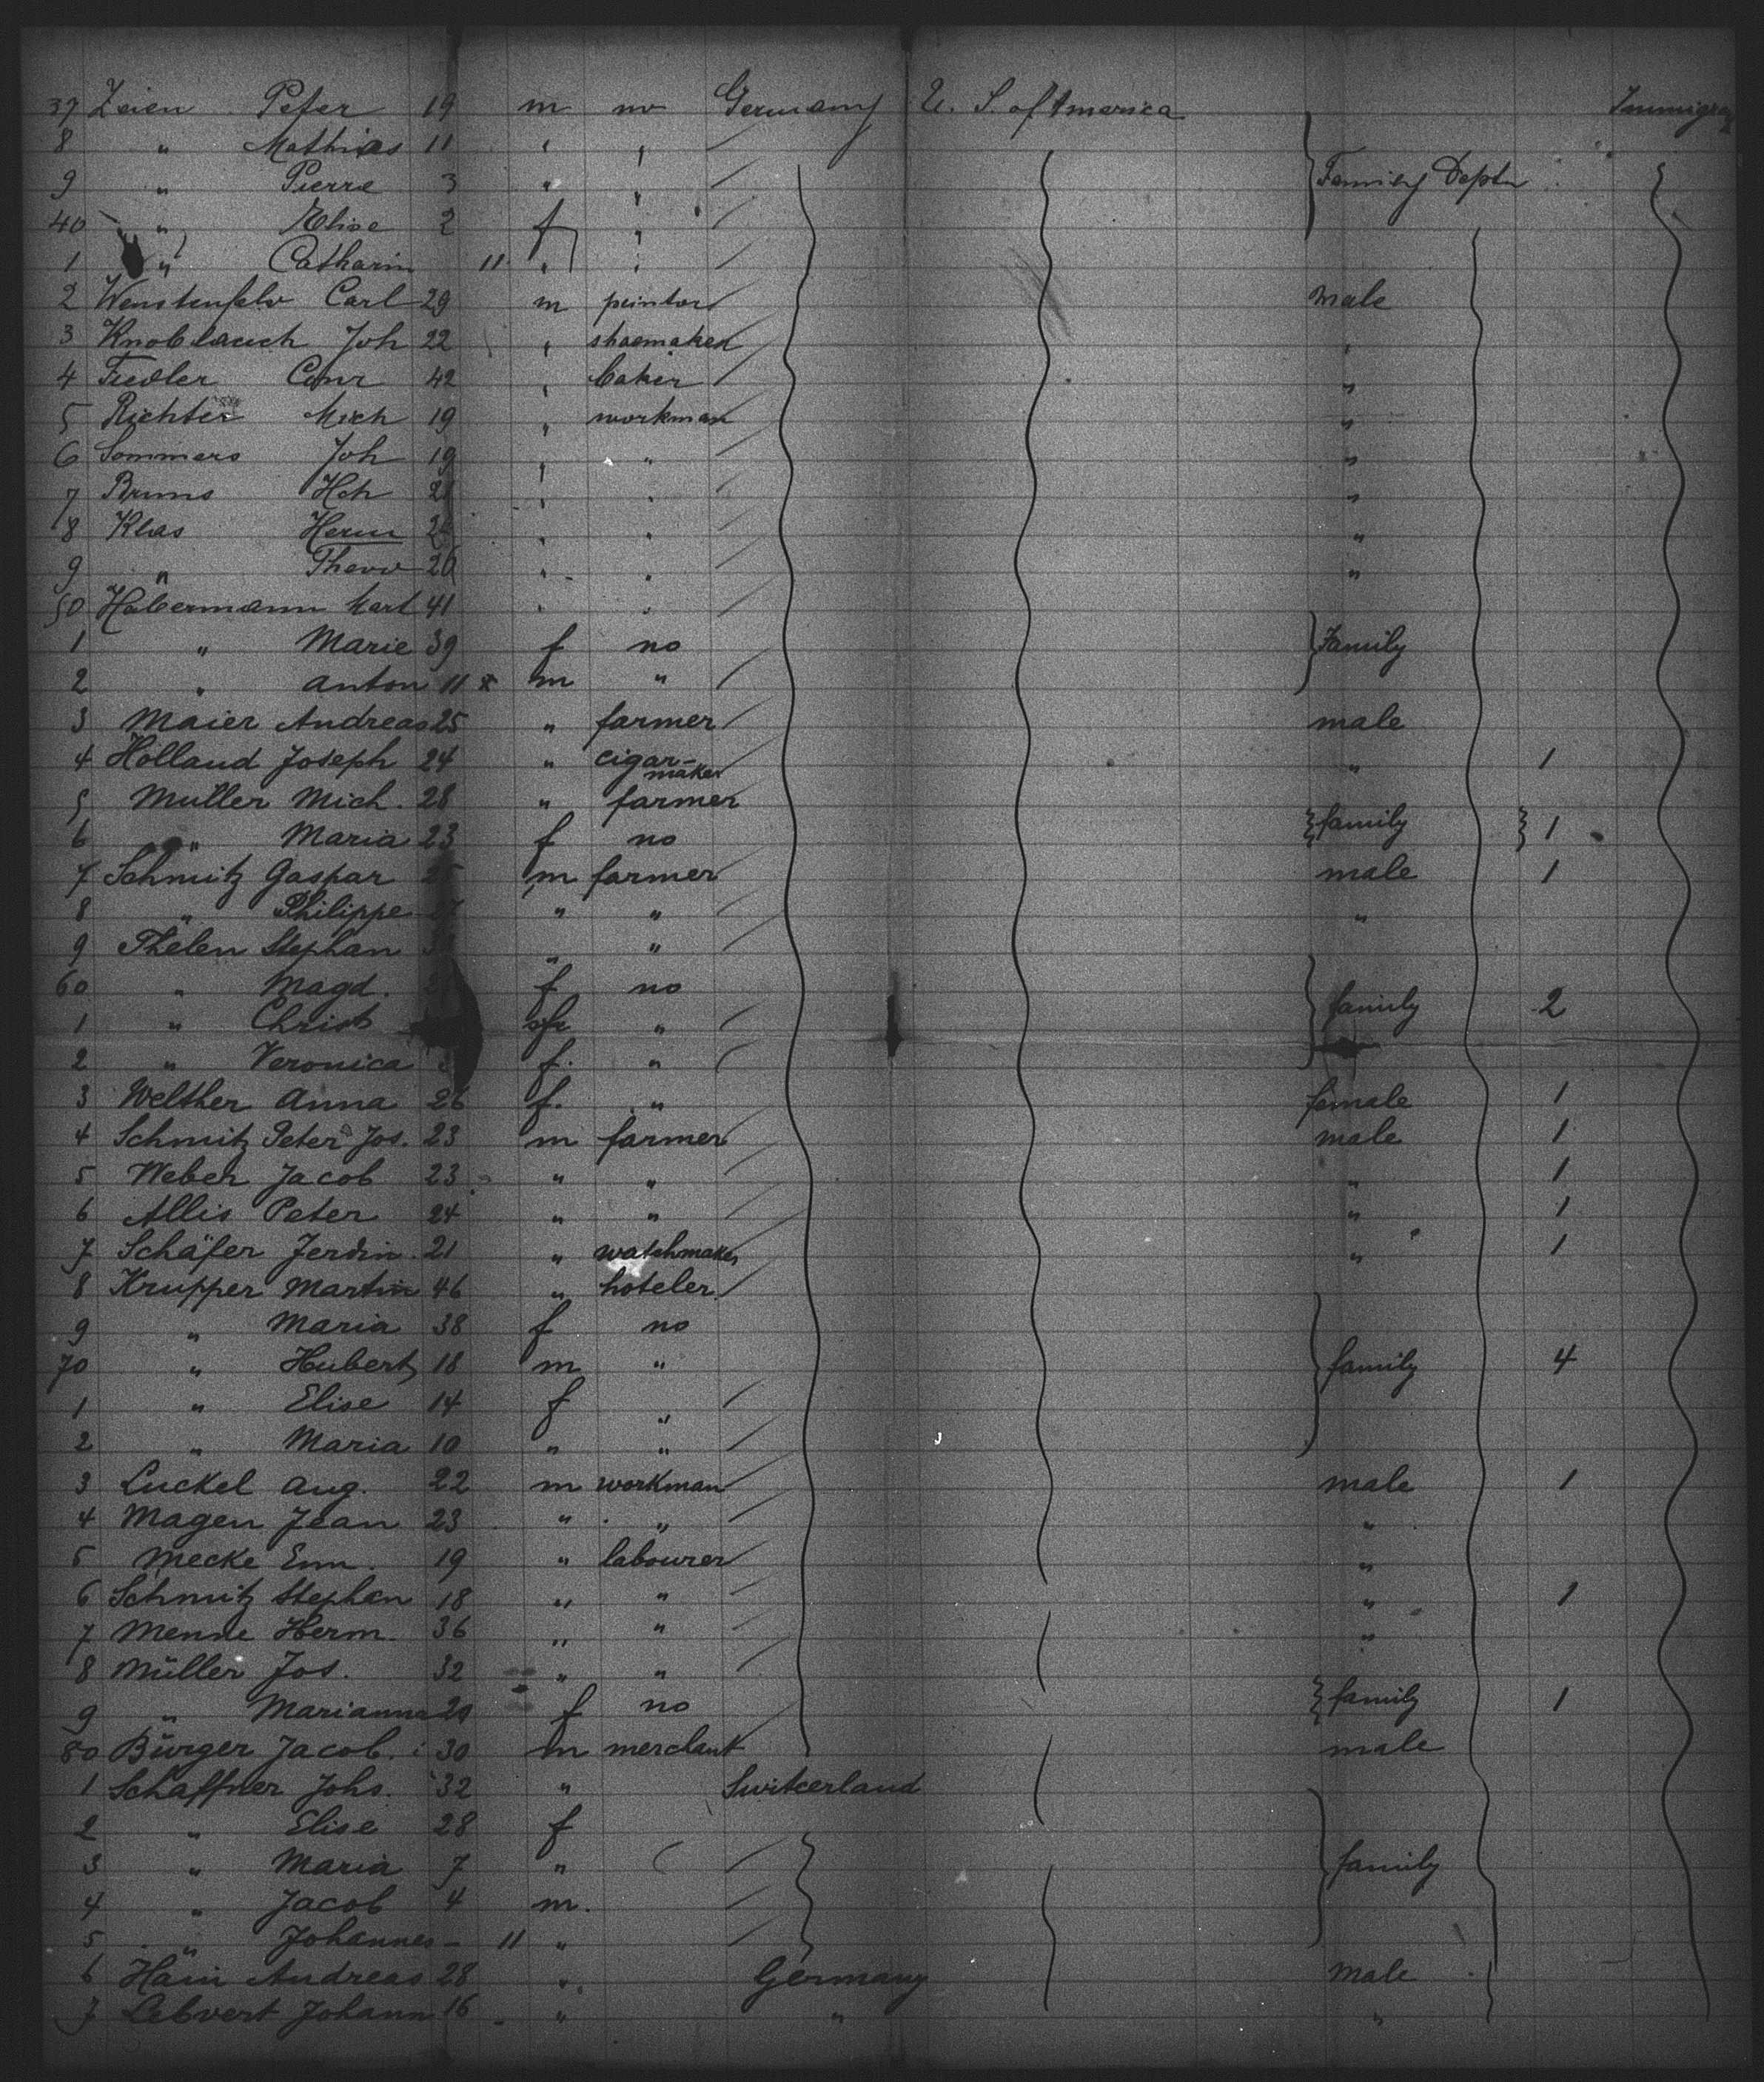 37 Zeien Peter 19 m no Germany U. S. of America Immigra
8 " Mathias 11 " "
9 " Pierre 3 " " Family Deptr
40 " Elise 2 f "
1 " Catharin 11 " "
2 Carl 29 m male
3 Knoblauch Joh 22 " shoemaker "
4 Fiedler Conr 42 " baker "
5 Richter Mich 19 " workman "
6 Sommers Joh 19 " " "
7 Bruns Hch " " "
8 Klas Herm " " "
9 " 26 " " "
50 Habermann 41 " "
1 " Marie 39 f no Family
2 " Anton 11 m "
3 Maier Andreas 25 " farmer male
4 Holland Joseph 24 " cigar-maker " 1
5 Muller Mich. 28 " farmer
6 " Maria 23 f no family 1
7 Schmitz Gaspar m farmer male 1
8 " Philippe " " "
9 Thelen Stephan " "
60 " Magd. f no
1 " Christ " family 2
2 " Veronica f. "
3 Welther Anna 26 f. " female 1
4 Schmitz Peter Jos. 23 m farmer male 1
5 Weber Jacob 23 " " " 1
6 Allis Peter 24 " " " 1
7 Schäfer Ferdin. 21 " watchmaker " 1
8 Krupper Martin 46 " hoteler
9 " Maria 38 f no
70 " Hubert 18 m " family 4
1 " Elise 14 f "
2 " Maria 10 " "
3 Luckel Aug. 22 m workman male 1
4 Magen Jean 23 " " "
5 Mecke Em. 19 " labourer "
6 Schmitz Stephan 18 " " " 1
7 Menne Herm. 36 " " "
8 Müller Jos. 32 " "
9 " Marianna f no family 1
80 Bürger Jacob. 30 m merchant male
1 Schaffner Johs. 32 " Switcerland
2 " Elise 28 f
3 " Maria 7 " family
4 " Jacob 4 m.
5 " Johannes - 11 "
6 Hain Andreas 28 " Germany male
7 Johann 16 " " "